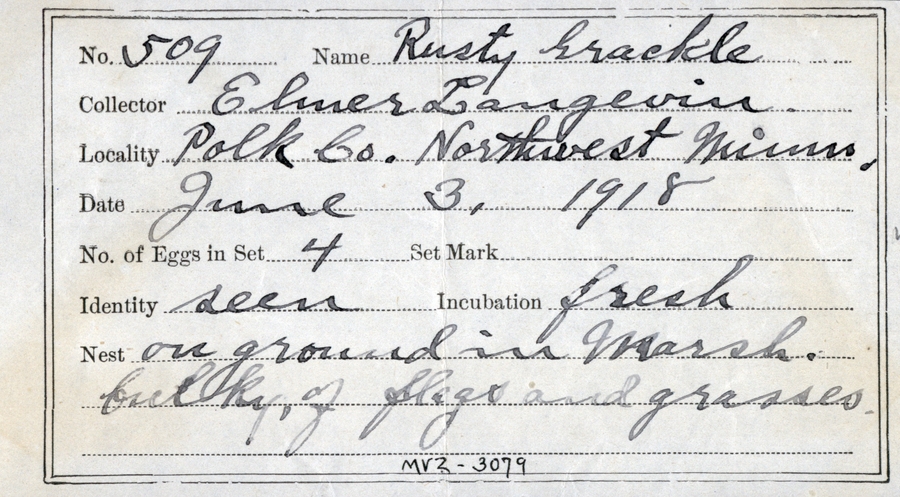 No. 509 Name Rusty Grackle
Collector Elmer Langevin.
Locality Polk Co. Northwest Minn.
Date June 3, 1918
No. of Eggs in Set 4 Set Mark
Identity seen Incubation fresh
Nest on ground in Marsh.
bulky, of flags and grasses.
MVZ - 3079